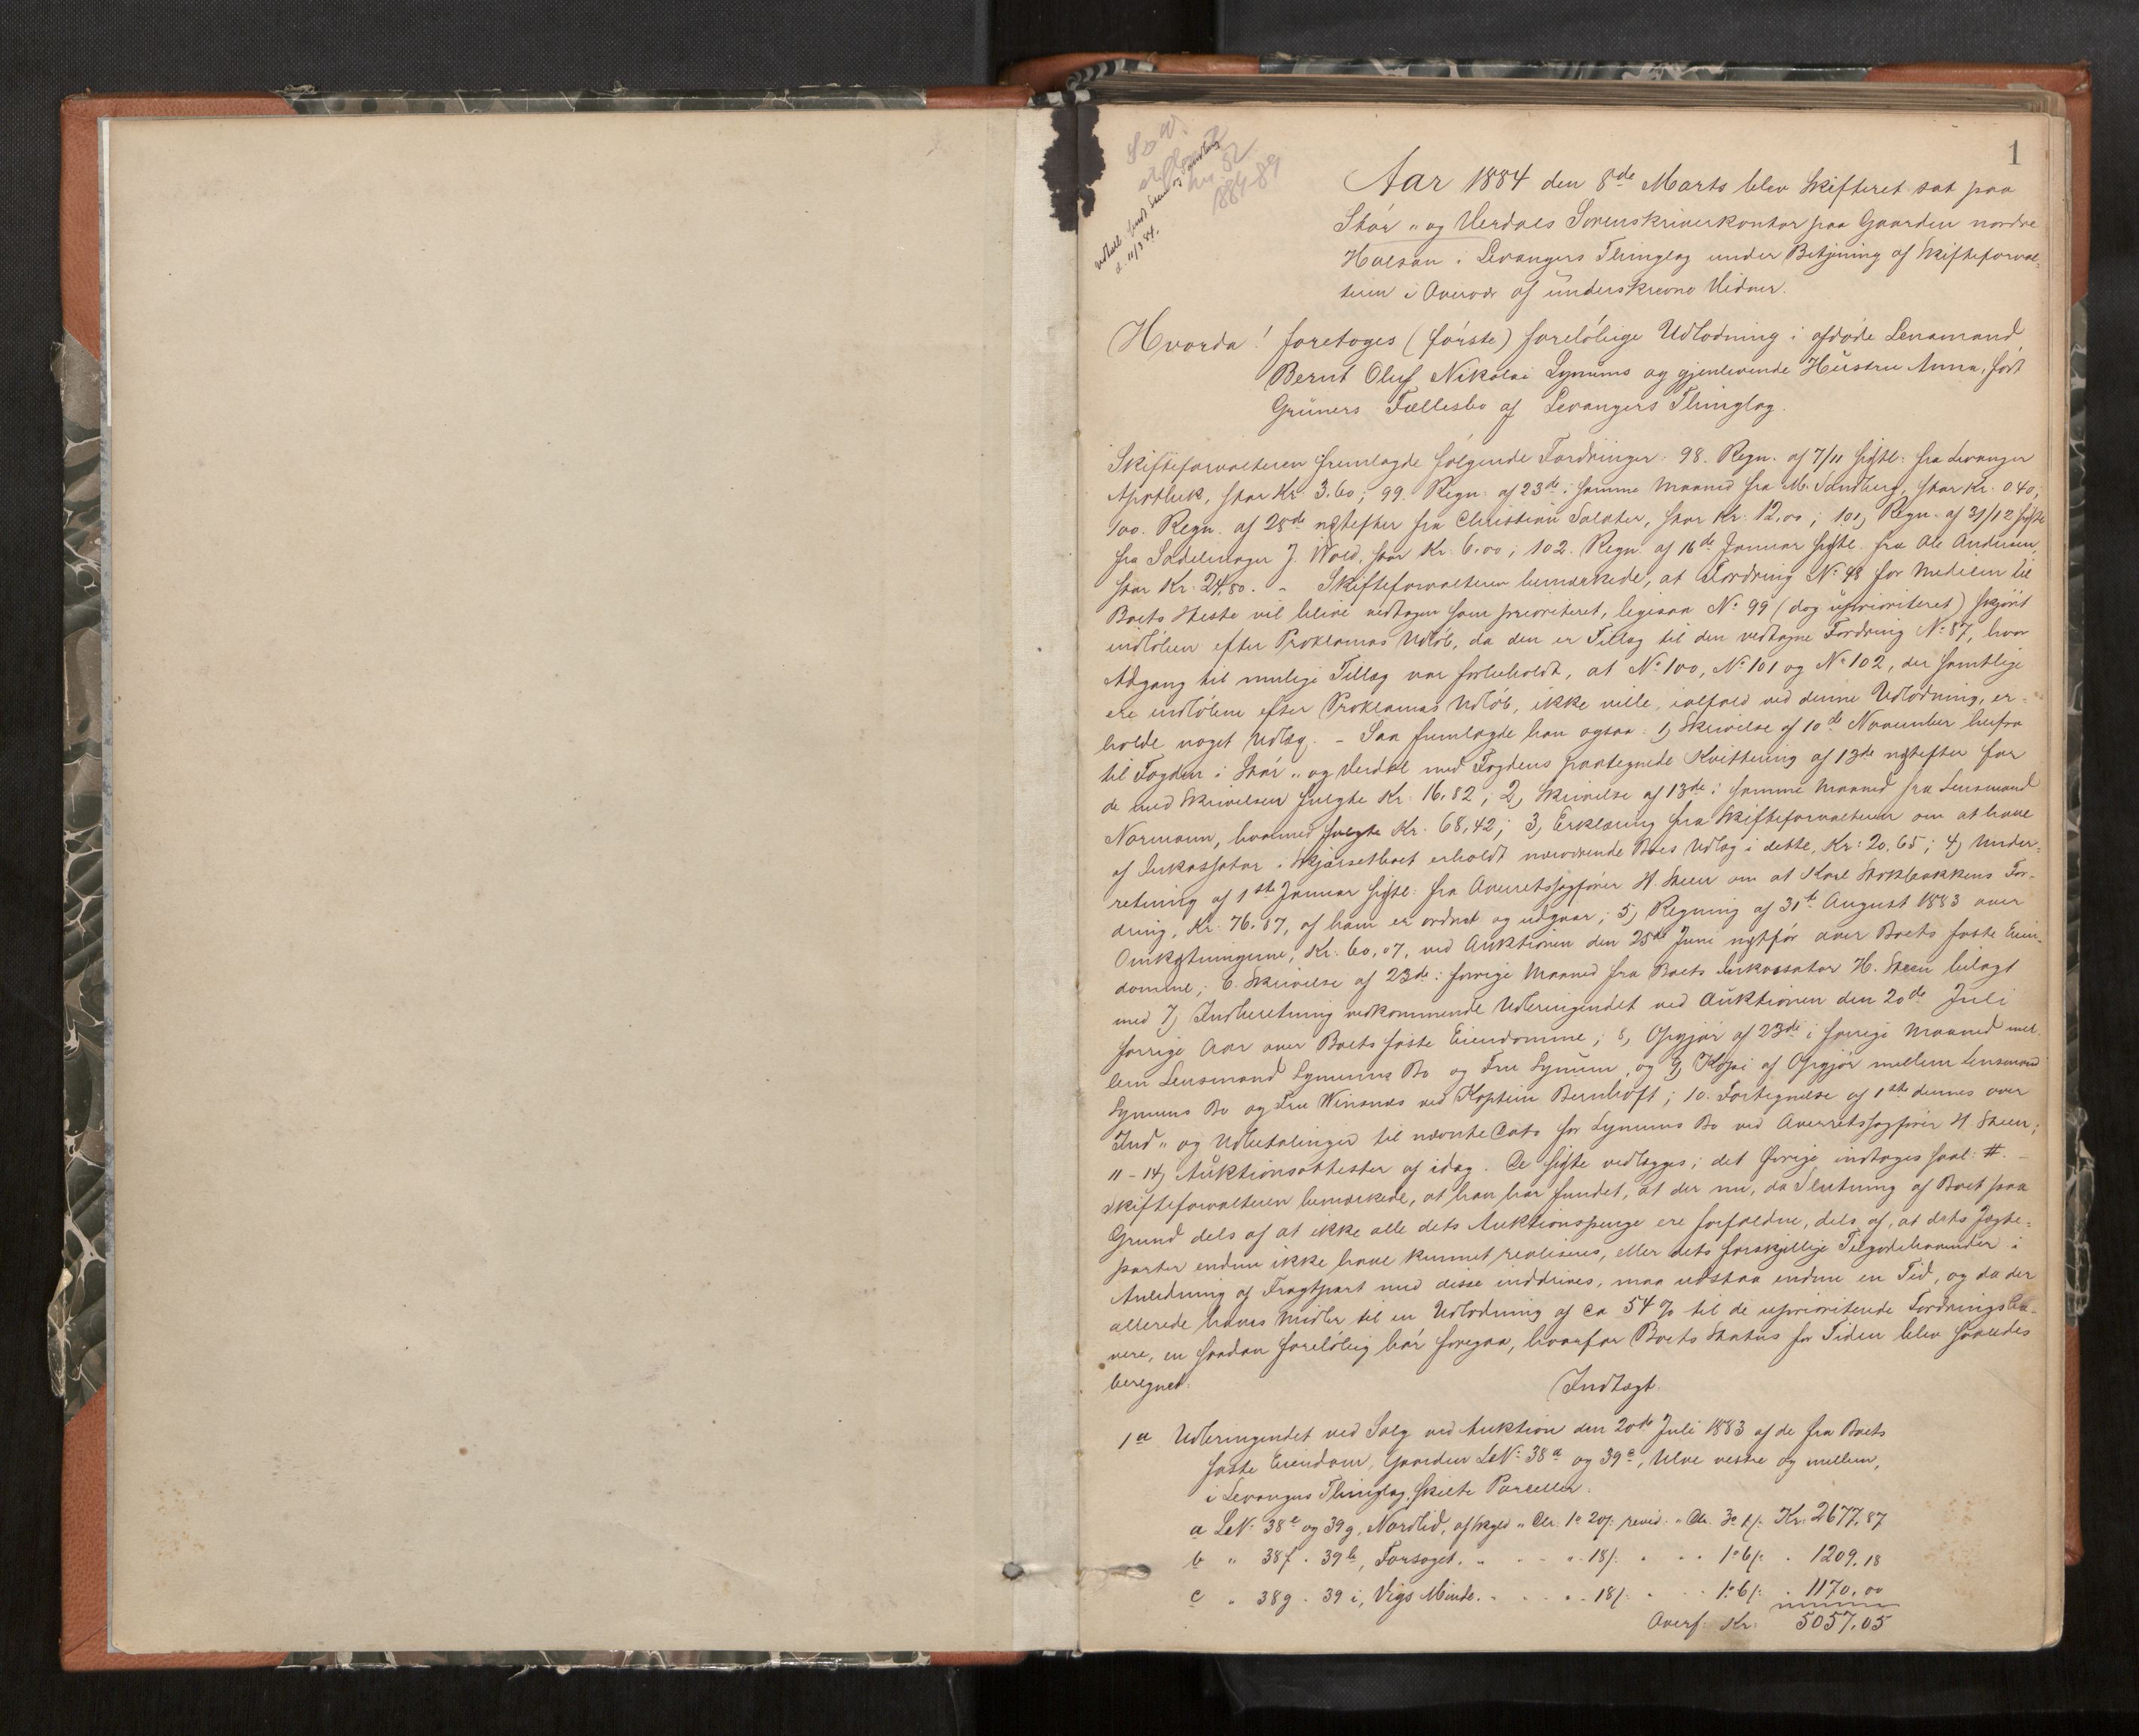 1
Aar 1884 den 8de Marts blev Skifteret sat paa
Stør- og Verdals Sorenskriverkontor paa Gaarden nordre
Halsan i Levangers Thinglag under Betjening af Skifteforval-
teren i Overvær af underskrevne Vidner.
Hvorda! foretoges (første) foreløbige Udlodning i afdøde Lensmand
Bernt Oluf Nikolai Lynums og gjenlevende Hustru Anna, født
Grüners Fællesbo af Levangers Thinglag.
Skifteforvalteren fremlagde følgende Fordringer: 98. Regn. af 7/11 sidstl. fra Levanger
Apothek, stor Kr. 3.60; 99. Regn. af 23de i samme Maaned fra M. Sandberg, stor Kr. 0.40;
100. Regn. af 28de næstefter fra Christian Salater, stor Kr. 12,00; 101) Regn. af 31/12 sidstl.
fra Sadelmager J. Wold, stor Kr. 6.00; 102. Regn. af 16de Januar sidstl. fra Ole Andersen,
stor Kr. 24,80. - Skifteforvalteren bemærkede, at Fordring No 98 for Medicin til
Boets Heste vil blive vedtagen som prioriteret, ligesaa No 99 (dog uprioriteret) skjønt
indløben efter Proklamas Udløb, da den er Tillæg til den vedtagne Fordring No 87, hvor
Adgang til mulige Tillæg var forbeholdt, at No 100, No 101 og No 102, der samtlige
ere indløbne efter Proklamas Udløb, ikke ville, ialfald ved denne Udlodning, er-
holde noget Udlæg. - Saa fremlagde han ogsaa: 1) Skrivelse af 10de November herfra
til Fogden i Stør- og Verdal med Fogdens paategnede Kvittering af 13de næstefter for
de med Skrivelsen fulgte Kr. 16,82; 2) Skrivelse af 13de i samme Maaned fra Lensmand
Normann, hvormed fulgte Kr. 68,42; 3) Erklæring fra Skifteforvalteren om at have
af Inkassator i Skjørsetboet erholdt nærværende Boes Udlæg i dette, Kr. 20.65; 4) Under-
retning af 1ste Januar sidstl. fra Overretssagfører H. Steen om at Karl Stokbakkens For-
dring, Kr. 76.87, af ham er ordnet og udgaar; 5) Regning af 31te August 1883 over
Omkostningerne, Kr. 60,07, ved Auktionen den 25de Juni næstfør over Boets faste Eien-
domme; 6. Skrivelse af 23de i forrige Maaned fra Boets Inkassator H. Steen bilagt
med 7) Indberetning vedkommende Udbringendet ved Auktionen den 20de Juli
forrige Aar over Boets faste Eiendomme; 8) Opgjør af 23de i forrige Maaned mel-
lem Lensmand Lynums Bo og Fru Lynum, og 9) Kopi af Opgjør mellem Lensmand
Lynums Bo og Fru Winsnes ved Kaptein Bernhoft; 10. Fortegnelse af 1ste dennes over
Ind- og Udbetalinger til nævnte Dato for Lynums Bo ved Overretssagfører H. Steen;
11-14) Auktionsattester af idag. De sidste vedlægges; det Øvrige indtages saal: #. -
Skifteforvalteren bemærkede, at han har fundet, at der nu, da Slutning af Boet paa
Grund dels af at ikke alle dets Auktionspenge ere forfaldne, dels af, at dets Jagte-
parter endnu ikke have kunnet realiseres, eller dets forskjellige Tilgodehavender i
Anledning af Fragtpart med disse inddrives, maa udstaa endnu en Tid, og da der
allerede haves Midler til en Udlodning af ca 54 % til de uprioriterede Fordringsha-
vere, en saadan foreløbig bør foregaa, hvorfor Boets Status for Tiden blev saaledes
beregnet.
Indtægt.
1a Udbringendet ved Salg ved Auktion den 20de Juli 1883 af de fra Boets
faste Eiendom, Gaarden LNo 38a og 39c, Ulve vestre og mellem,
i Levangers Thinglag, skilte Parceller.
a LNo 38e og 39g, Nordlid, af Skyld - Dlr. 1o 20s. revid. - Dlr. 3o 1s. Kr. 2677,87
b " 38f - 39h, Forsøget. - - - - 18s. - - - 1o 6s. - 1209,18
c " 38g - 39i, Vigs Minde. - - - - 18s. - - - 1o 6s. - 1170,00
Overf. Kr. 5057,05